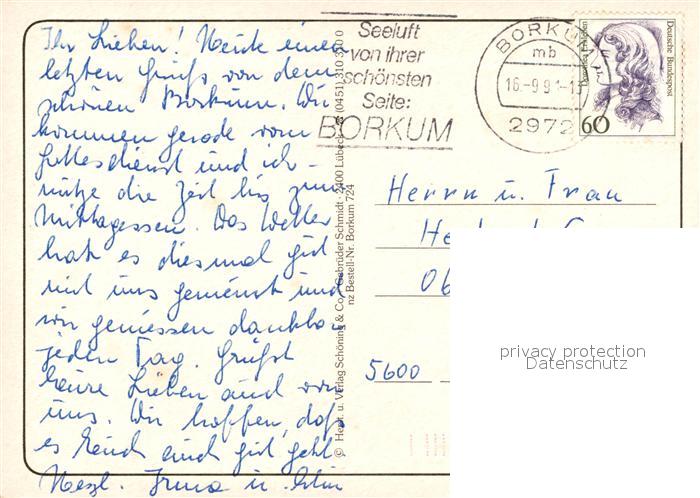 Ihr Lieben! Heute einen
letzten Gruß von dem
schönen Borkum. Wir
kommen gerade vom
Gottesdienst und ich
nütze die Zeit bis zum
Mittagessen. Das Wetter
hat es diesmal gut
mit uns gemeint und
wir geniessen dankbar
jeden Tag. Grüßt
Eure Lieben auch von
uns. Wir hoffen, daß
es Euch auch gut geht.
Herzl. Irma u.
Seeluft
von ihrer
schönsten
Seite:
BORKUM
BORKUM
mb
16.-9.91-1
2972
Deutsche Bundespost
60
© Herst. u. Verlag Schöning & Co. + Gebrüder Schmidt · 2400 Lübeck
nz Bestell-Nr. Borkum 724
Herrn u. Frau
He
06
5600
privacy protection
Datenschutz